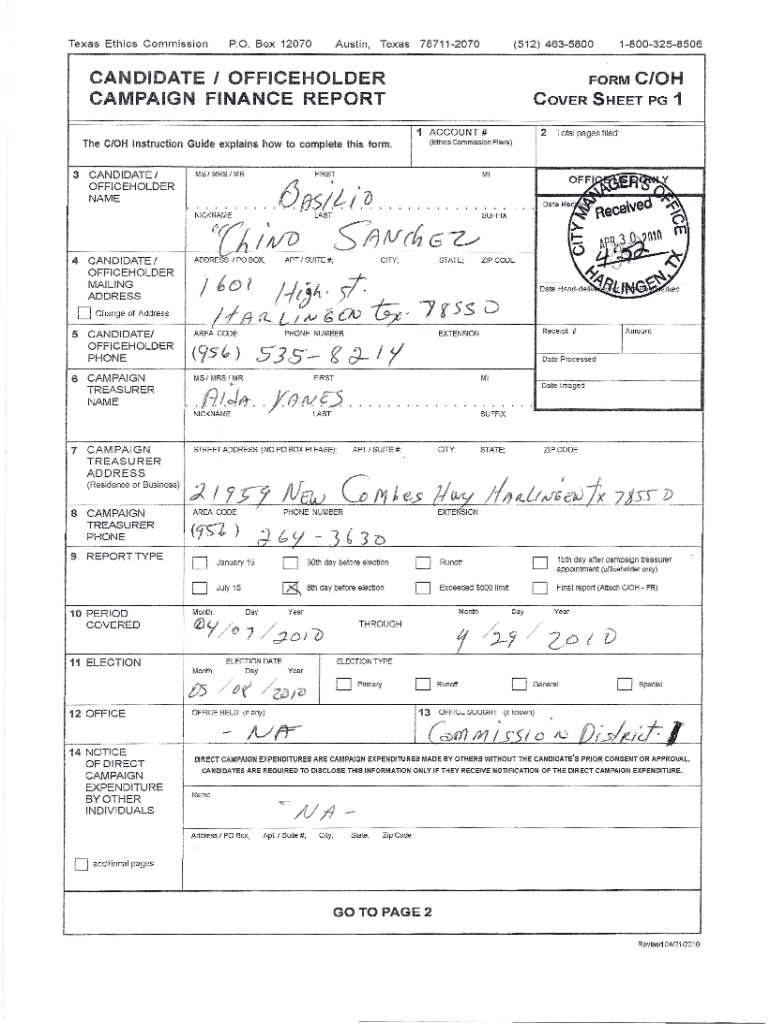 Texas Ethics Commission P.O. Box 12070 Austin, Texas 78711-2070 (512) 463-5800 1-800-325-8506
CANDIDATE / OFFICEHOLDER
CAMPAIGN FINANCE REPORT
FORM C/OH
COVER SHEET PG 1
The C/OH Instruction Guide explains how to complete this form.
1 ACCOUNT #
(Ethics Commission Filers)
2 Total pages filed:
3 CANDIDATE / OFFICEHOLDER NAME
MS / MRS / MR FIRST MI
Basilio
NICKNAME LAST SUFFIX
"Chino SANchez
OFFICE USE ONLY
Date Received
CITY MANAGER'S OFFICE
Received
APR 30 2010
4:52
HARLINGEN, TX
4 CANDIDATE / OFFICEHOLDER MAILING ADDRESS
Change of Address
ADDRESS / PO BOX; APT / SUITE #; CITY; STATE; ZIP CODE
1601 High. st.
HARLINGEN Tex. 78550
Date Hand-delivered or Postmarked
5 CANDIDATE/ OFFICEHOLDER PHONE
AREA CODE PHONE NUMBER EXTENSION
(956) 535-8214
Receipt # Amount
Date Processed
6 CAMPAIGN TREASURER NAME
MS / MRS / MR FIRST MI
Aida YANES
NICKNAME LAST SUFFIX
Date Imaged
7 CAMPAIGN TREASURER ADDRESS
(Residence or Business)
STREET ADDRESS (NO PO BOX PLEASE); APT / SUITE #; CITY; STATE; ZIP CODE
21959 New Combes Hwy HARLINGEN TX 78550
8 CAMPAIGN TREASURER PHONE
AREA CODE PHONE NUMBER EXTENSION
(956) 264-3630
9 REPORT TYPE
January 15 30th day before election Runoff 15th day after campaign treasurer appointment (officeholder only)
July 15 8th day before election Exceeded $500 limit Final report (Attach C/OH - FR)
10 PERIOD COVERED
Month Day Year Month Day Year
04/07/2010 THROUGH 4/29/2010
11 ELECTION
ELECTION DATE ELECTION TYPE
Month Day Year
05/08/2010 Primary Runoff General Special
12 OFFICE
OFFICE HELD (if any)
- NA
13 OFFICE SOUGHT (if known)
Commission District. 1
14 NOTICE OF DIRECT CAMPAIGN EXPENDITURE BY OTHER INDIVIDUALS
DIRECT CAMPAIGN EXPENDITURES ARE CAMPAIGN EXPENDITURES MADE BY OTHERS WITHOUT THE CANDIDATE'S PRIOR CONSENT OR APPROVAL.
CANDIDATES ARE REQUIRED TO DISCLOSE THIS INFORMATION ONLY IF THEY RECEIVE NOTIFICATION OF THE DIRECT CAMPAIGN EXPENDITURE.
Name
- NA -
Address / PO Box; Apt. / Suite #; City; State; Zip Code
additional pages
GO TO PAGE 2
Revised 04/21/2010